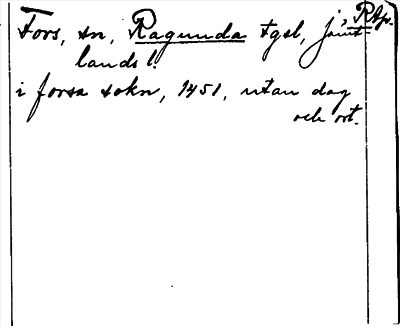 Fors, sn, Ragunda tgsl, jämt-
lands l.
i forsa sokn, 1451, utan dag
och ort.